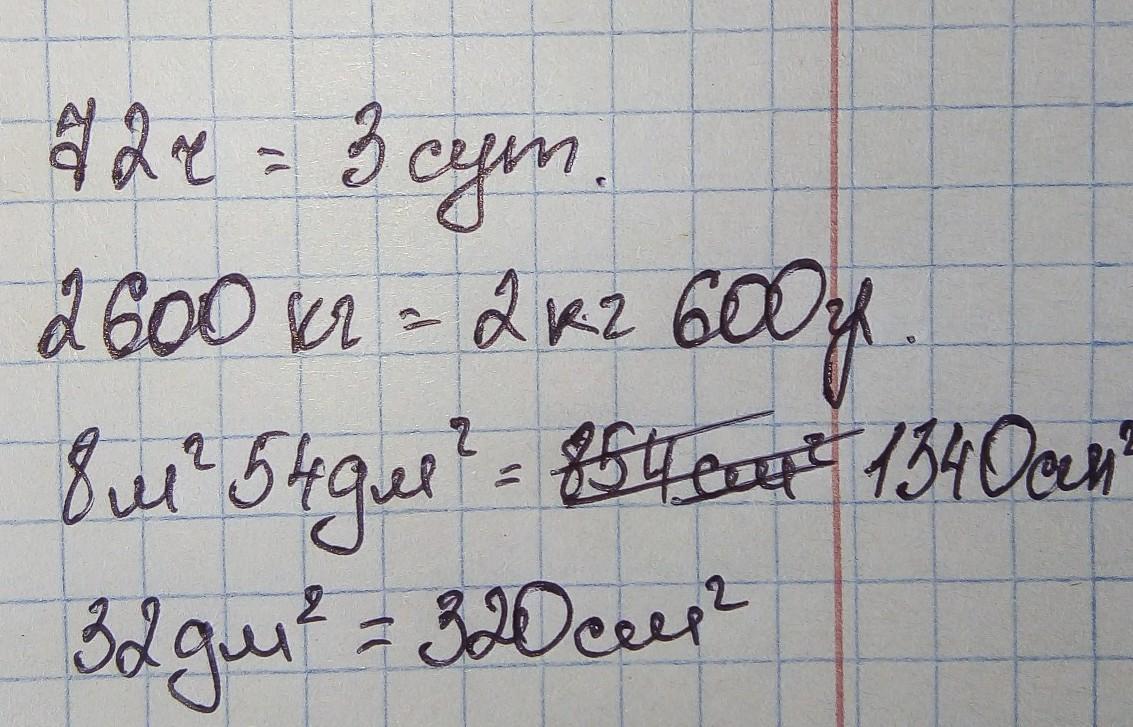 72ч = 3 сут.
2600 кг = 2 кг 600 г.
8м² 54дм² = 854см² 1340см²
32дм² = 320см²